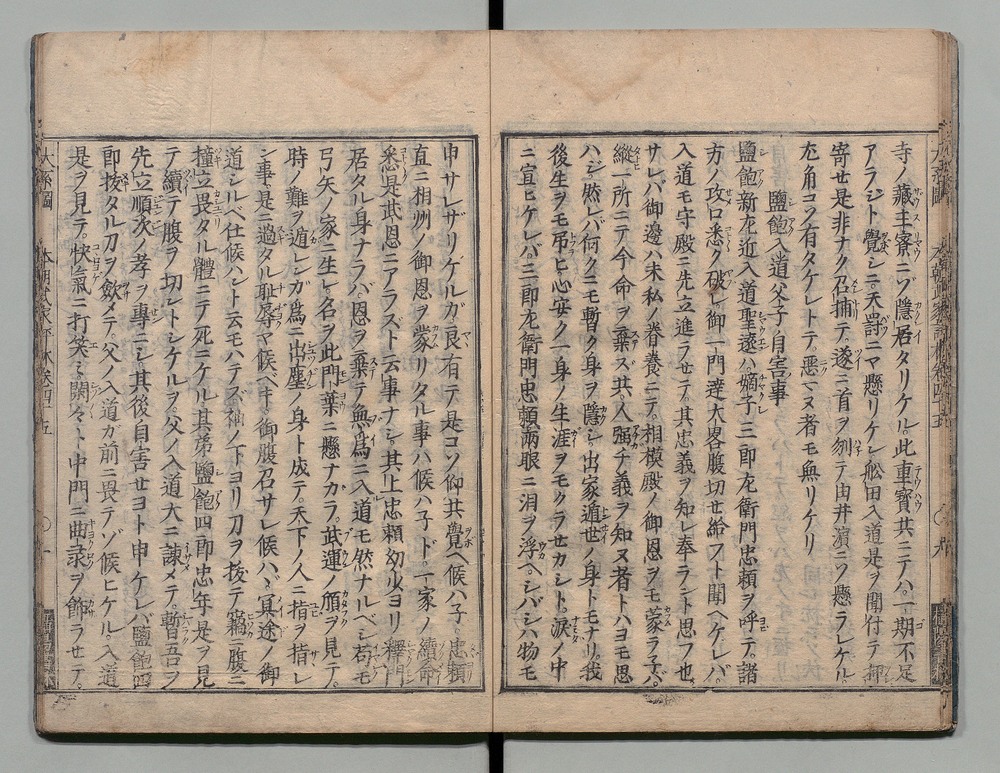 寺ノ藏主寮ニゾ隱居タリケル。此重寳共ニテハ。一期不足
アラジト覺シニ天罸ニヤ懸リケン舩田入道是ヲ聞付テ押
寄セ是非ナク召捕テ。遂ニ首ヲ刎テ由井濵ニゾ懸ラレケル。
尤角コソ有タケレトテ。惡マヌ者モ無リケリ
鹽飽入道父子自害事
鹽飽新左近入道聖遠ハ嫡子三郎左衛門忠頼ヲ呼テ。諸
方ノ攻口悉ク破レ御一門達大畧腹切セ給フト聞ヘケレバ。
入道モ守殿ニ先立進ラセテ。其忠義ヲ知レ奉ラント思フ也。
サレバ御邊ハ未私ノ眷養ニテ。相模殿ノ御恩ヲモ蒙ラ子バ。
縱一所ニテ今命ヲ棄ズ共。人強チ義ヲ知ヌ者トハヨモ思
ハジ然レバ何クニモ暫ク身ヲ隱シ。出家遁世ノ身トモナリ。我
後生ヲモ弔ヒ心安ク一身ノ生涯ヲモクラセカシト。淚ノ中
ニ宣ヒケレバ。三郎左衛門忠頼兩眼ニ泪ヲ浮ヘシバシハ物モ
申サレザリケルガ良有テ是コソ仰共覺ヘ候ハ子忠頼
直ニ相州ノ御恩ヲ蒙リタル事ハ候ハ子ド。一家ノ續命
悉ク是武恩ニアラズト云事ナシ其上忠頼幼少ヨリ釋門
居タル身ナラバ。恩ヲ棄テ無爲ニ入道モ然ナルベシ苟モ
弓矢ノ家ニ生レ名ヲ此門葉ニ懸ナカラ。武運ノ傾ヲ見テ。
時ノ難ヲ遁レンガ爲ニ出塵ノ身ト成テ。天下ノ人ニ指ヲ指レ
ン事是ニ過タル耻辱ヤ候ヘキ御腹召サレ候ハヾ冥途ノ御
道シルベ仕候ハント云モハテズ袖ノ下ヨリ刀ヲ拔テ竊ニ腹ニ
撞立畏タル體ニテ死ニケル其弟鹽飽四郎忠年是ヲ見
テ續テ腹ヲ切ントシケルヲ。父ノ入道大ニ諫メテ。暫吾ヲ
先立順次ノ孝ヲ專ニシ其後自害セヨト申ケレバ鹽飽四
郎拔タル刀ヲ歛メテ。父ノ入道ガ前ニ畏テゾ候ヒケル。入道
是ヲ見テ。快氣ニ打笑ヒ閑々ト中門ニ曲彔ヲ飾ラセテ。